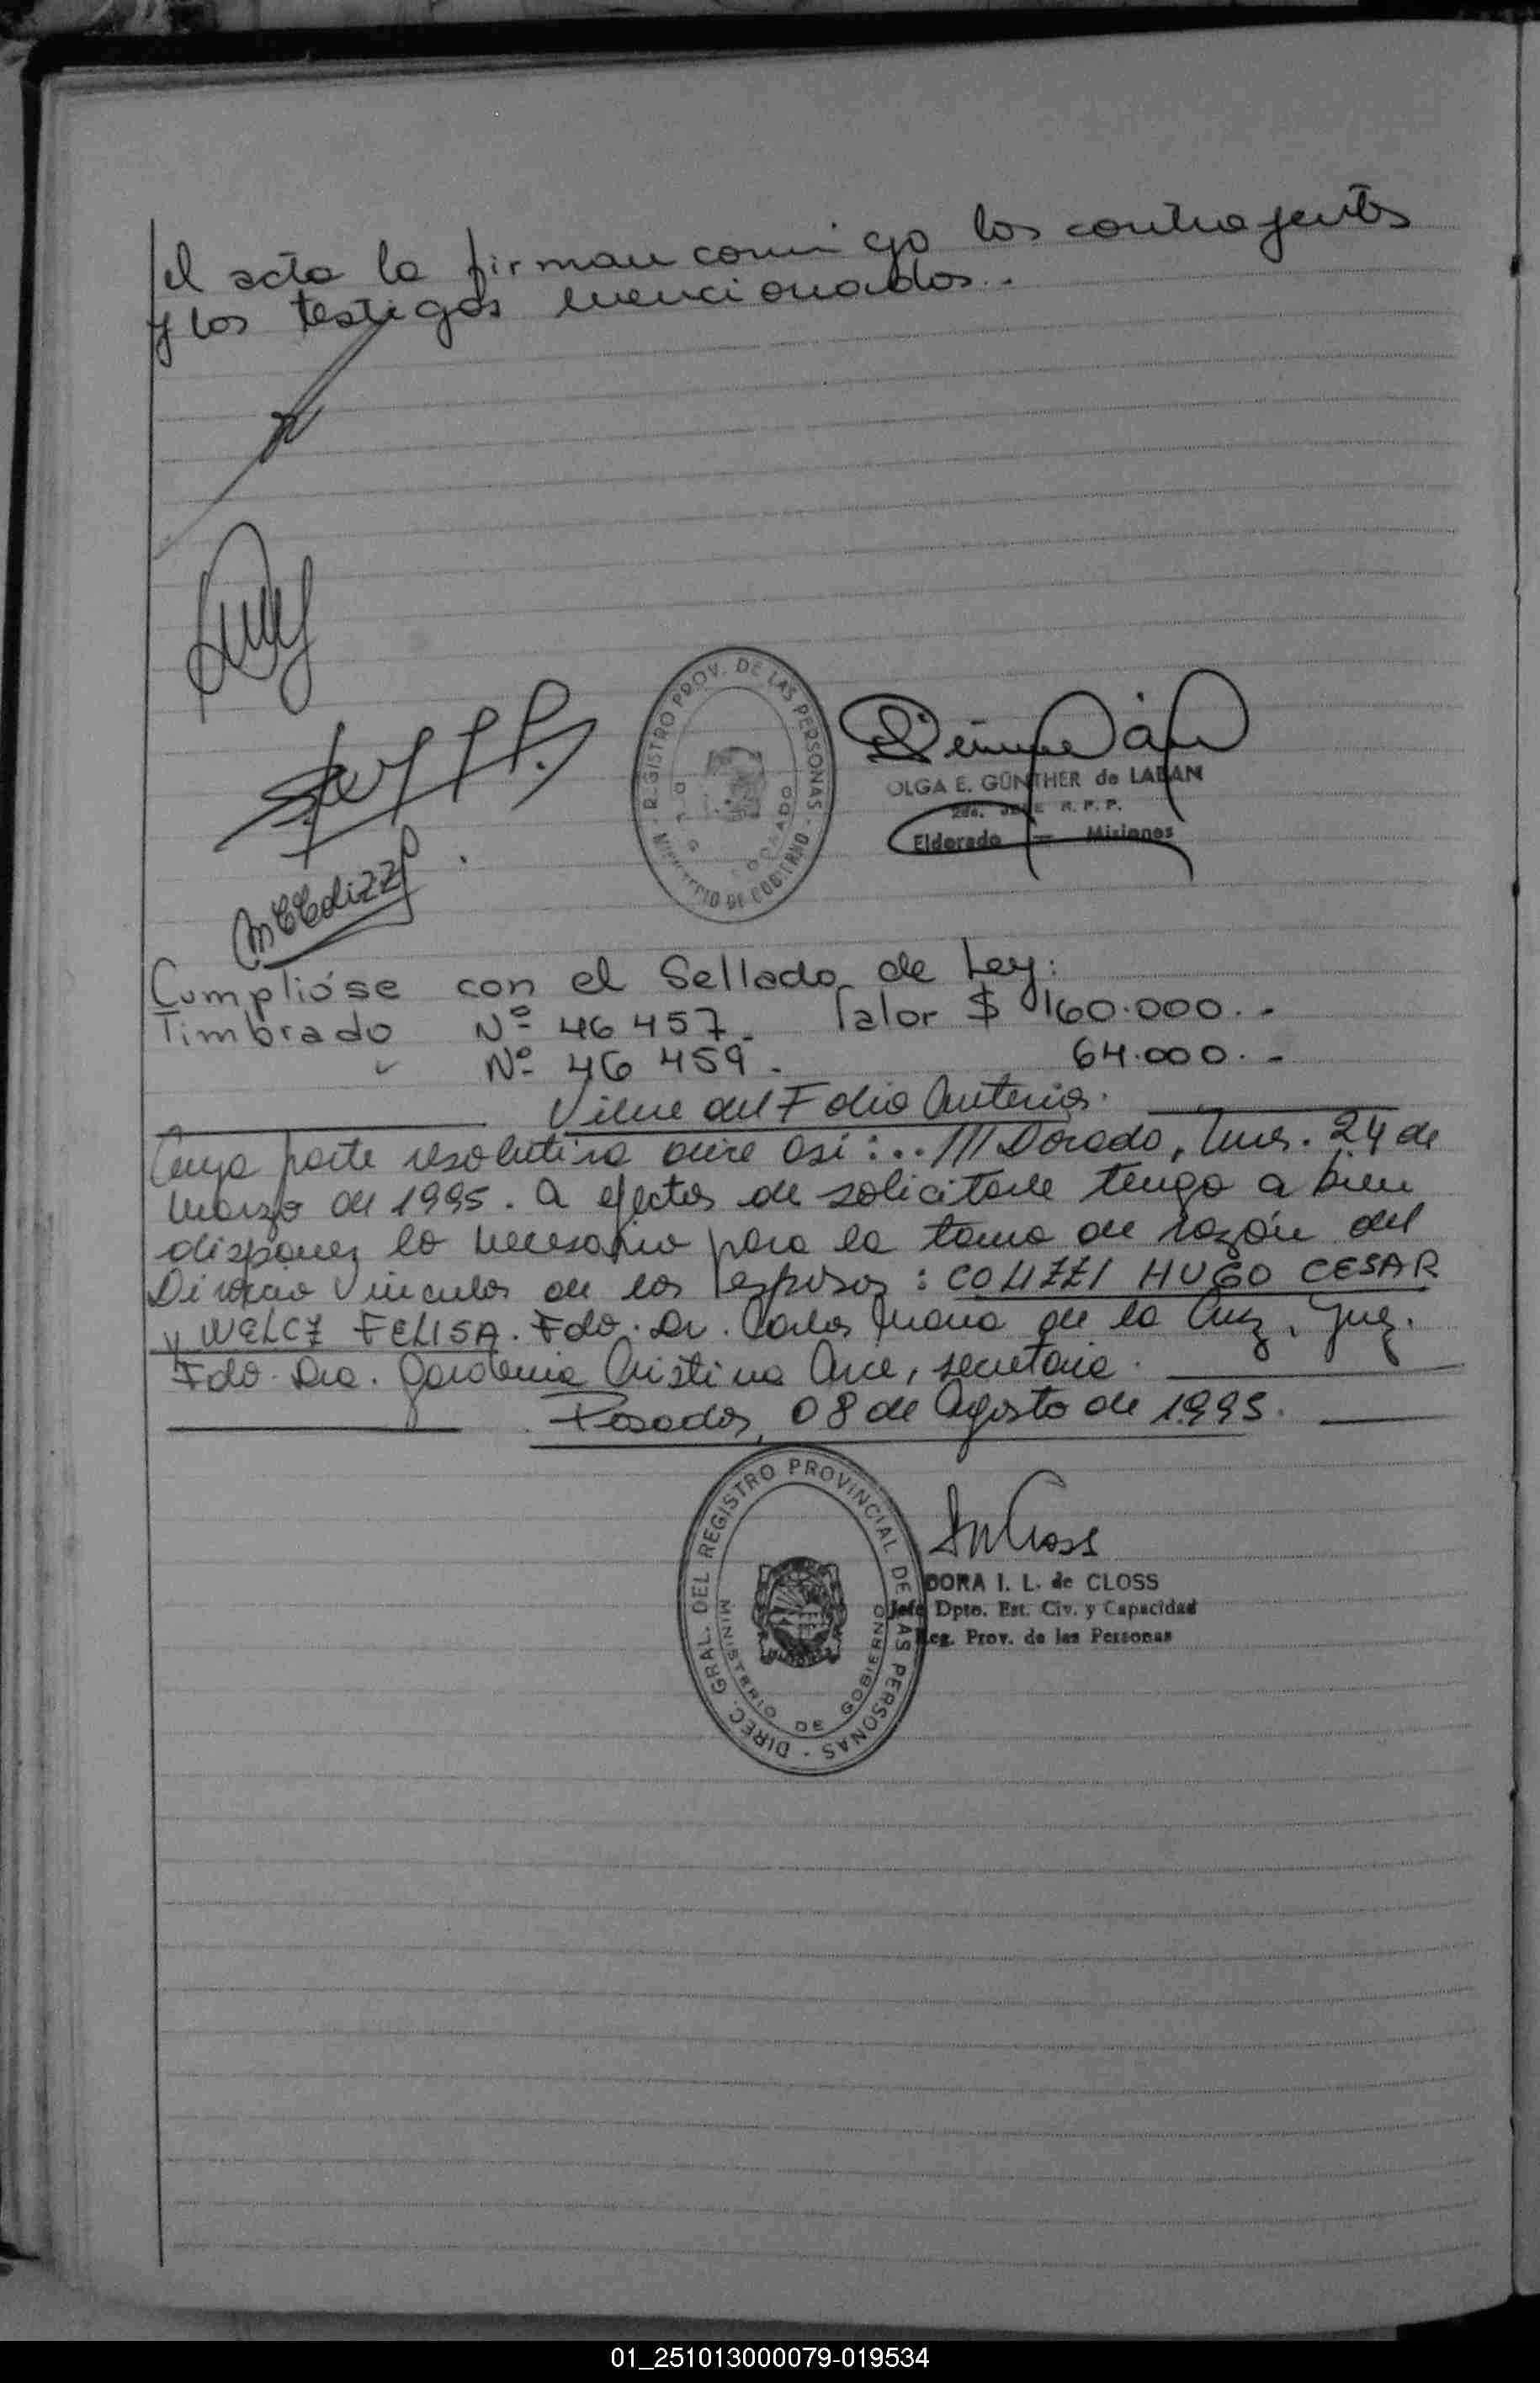 el acta la firman conmigo los contrayentes
y los testigos mencionados..
REGISTRO PROV. DE LAS PERSONAS -
MINISTERIO DE GOBIERNO
OLGA E. GÜNTHER de LABAN
2do. JEFE R. P. P.
Eldorado — Misiones
Cumplióse con el Sellado de Ley:
Timbrado Nº 46 457. Valor $ 160.000.-
Nº 46 459. 64.000.-
Viene del Folio Anterior.
Cuya parte resolutiva dice así:../// Dorado, Mnes. 24 de
Marzo de 1995. A efectos de solicitarle tenga a bien
disponer lo necesario para la toma de razón del
Divorcio Vincular de los esposos: COLIZZI HUGO CESAR
y WELCZ FELISA. Fdo. Dr. Carlos María de la Cruz, Juez.
Fdo. Dra. Gardenia Cristina Arce, secretaria.
Posadas, 08 de Agosto de 1995.
DIREC. GRAL. DEL REGISTRO PROVINCIAL DE LAS PERSONAS -
MINISTERIO DE GOBIERNO
DORA I. L. de CLOSS
Jefe Dpto. Est. Civ. y Capacidad
Reg. Prov. de las Personas
01_251013000079-019534